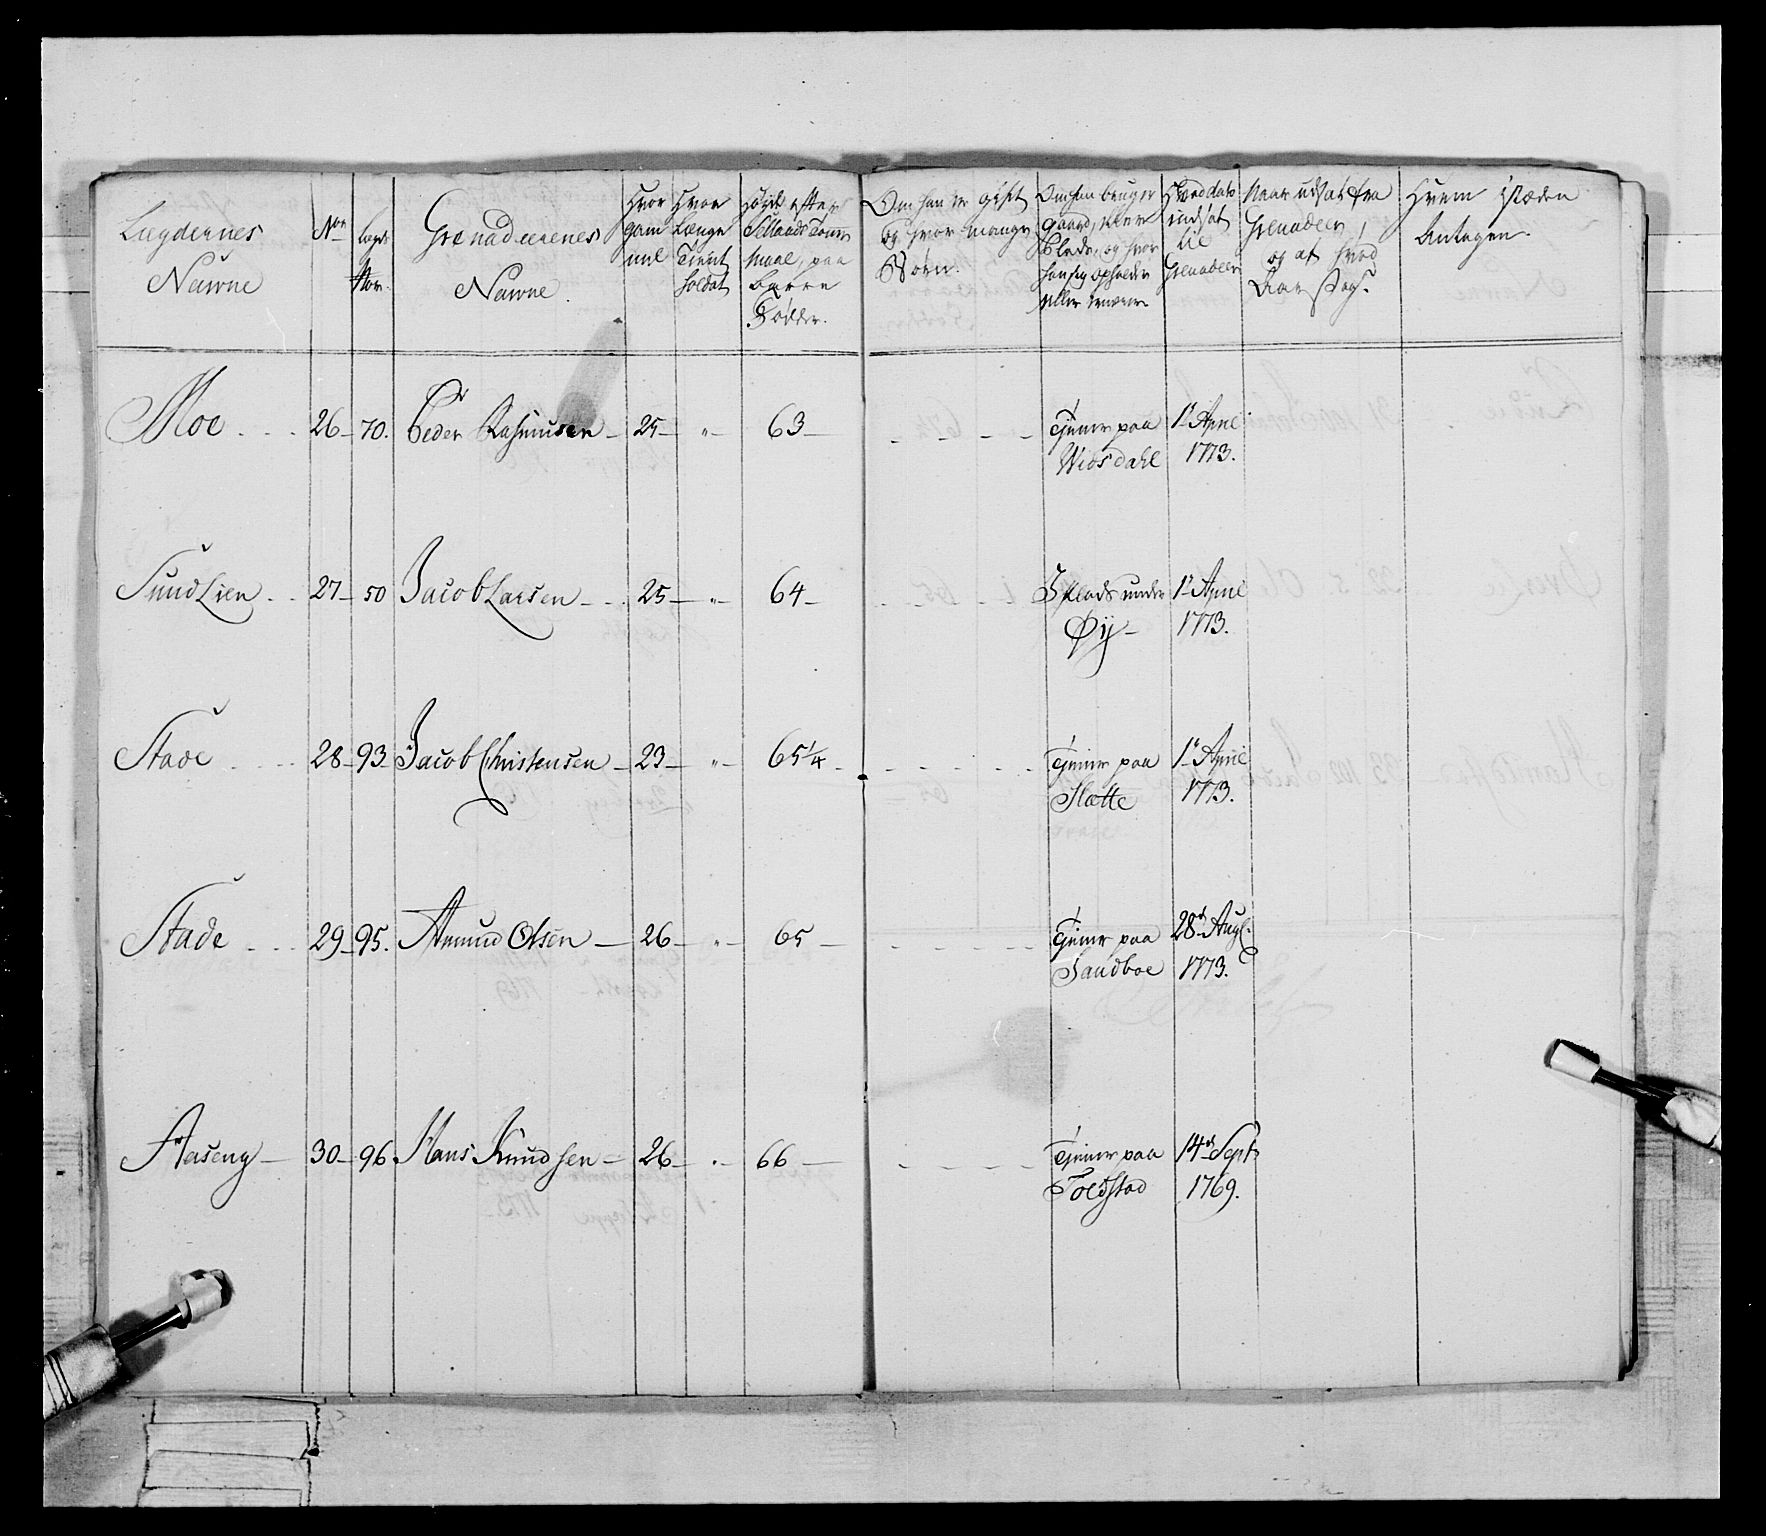 Lægdernes Nawne
Nor
Lægds Nor.
Grenadeerenes Nawne.
Hvor gammel
Hvor Længe Tient Soldat
Høide efter Sellands Tomme Maal, paa barre Fødder.
Om han er gift og hvor mange Børn.
Om han bruger gaard, eller Plads, og hvor han sig opholder eller tiener
Hvad dato indsat til Grenadeer
Naar udsat fra Grenadeer, og af hvad Aarsag.
Hvem i stæden Antagen.
Moe 26 70. Peder Rasmussen 25 " 63 Tjener paa Wiosdahl 1te April 1773.
Sundlien 27 50 Jacob Larsen 25 " 64 I Plads under Øij 1te April 1773.
Stade 28 93 Jacob Christensen 23 " 65 1/4 Tjener paa Slætte 1te April 1773.
Stade 29 95. Amund Olsen 26 " 65 Tjener paa Sandboe 28d Aug. 1773.
Aaseng 30 96 Hans Knudsen 26 " 66 Tjener paa Toldstad 14d Sept. 1769.